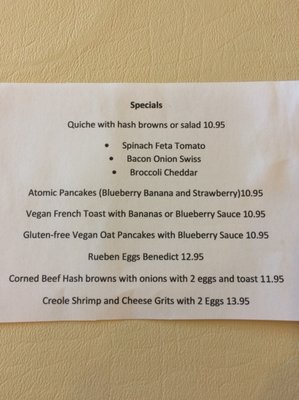 Specials
Quiche with hash browns or salad 10.95
• Spinach Feta Tomato
• Bacon Onion Swiss
• Broccoli Cheddar
Atomic Pancakes (Blueberry Banana and Strawberry)10.95
Vegan French Toast with Bananas or Blueberry Sauce 10.95
Gluten-free Vegan Oat Pancakes with Blueberry Sauce 10.95
Rueben Eggs Benedict 12.95
Corned Beef Hash browns with onions with 2 eggs and toast 11.95
Creole Shrimp and Cheese Grits with 2 Eggs 13.95